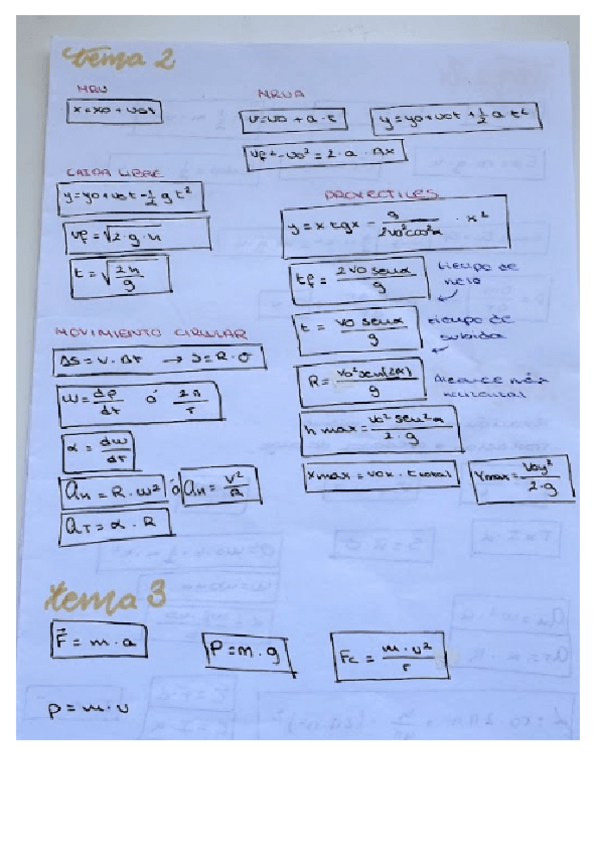 tema 2
MRU
x = x0 + v0t
MRUA
v = v0 + a · t
y = y0 + v0t + 1/2 a t²
vf² - v0² = 2 · a · Δx
CAIDA LIBRE
y = y0 + v0t - 1/2 g t²
vf = √2 · g · h
t = √2h/g
PROYECTILES
y = x tgα - g/2v0²cos²α · x²
tf = 2v0 senα/g
tiempo de
vuelo
t = v0 senα/g
tiempo de
subida
R = v0² sen(2α)/g
Alcance máx
horizontal
h max = v0² sen²α/2 · g
xmax = v0x · t total
Ymax = v0y²/2 · g
MOVIMIENTO CIRCULAR
Δs = v · Δt → s = R · θ
ω = dφ/dt ó 2π/T
α = dω/dt
an = R · ω² ó an = v²/R
aT = α · R
tema 3
F = m · a
P = m · g
Fc = m · v²/r
p = m · v